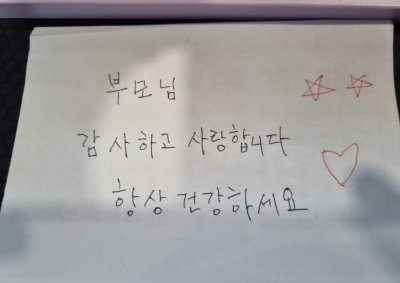 부모님
감사하고 사랑합니다
항상 건강하세요